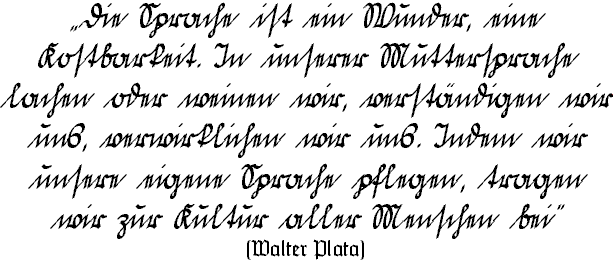 „Die Sprache ist ein Wunder, eine
Kostbarkeit. In unserer Muttersprache
lachen oder weinen wir, verständigen wir
uns, verwirklichen wir uns. Indem wir
unsere eigene Sprache pflegen, tragen
wir zur Kultur aller Menschen bei“
(Walter Plata)